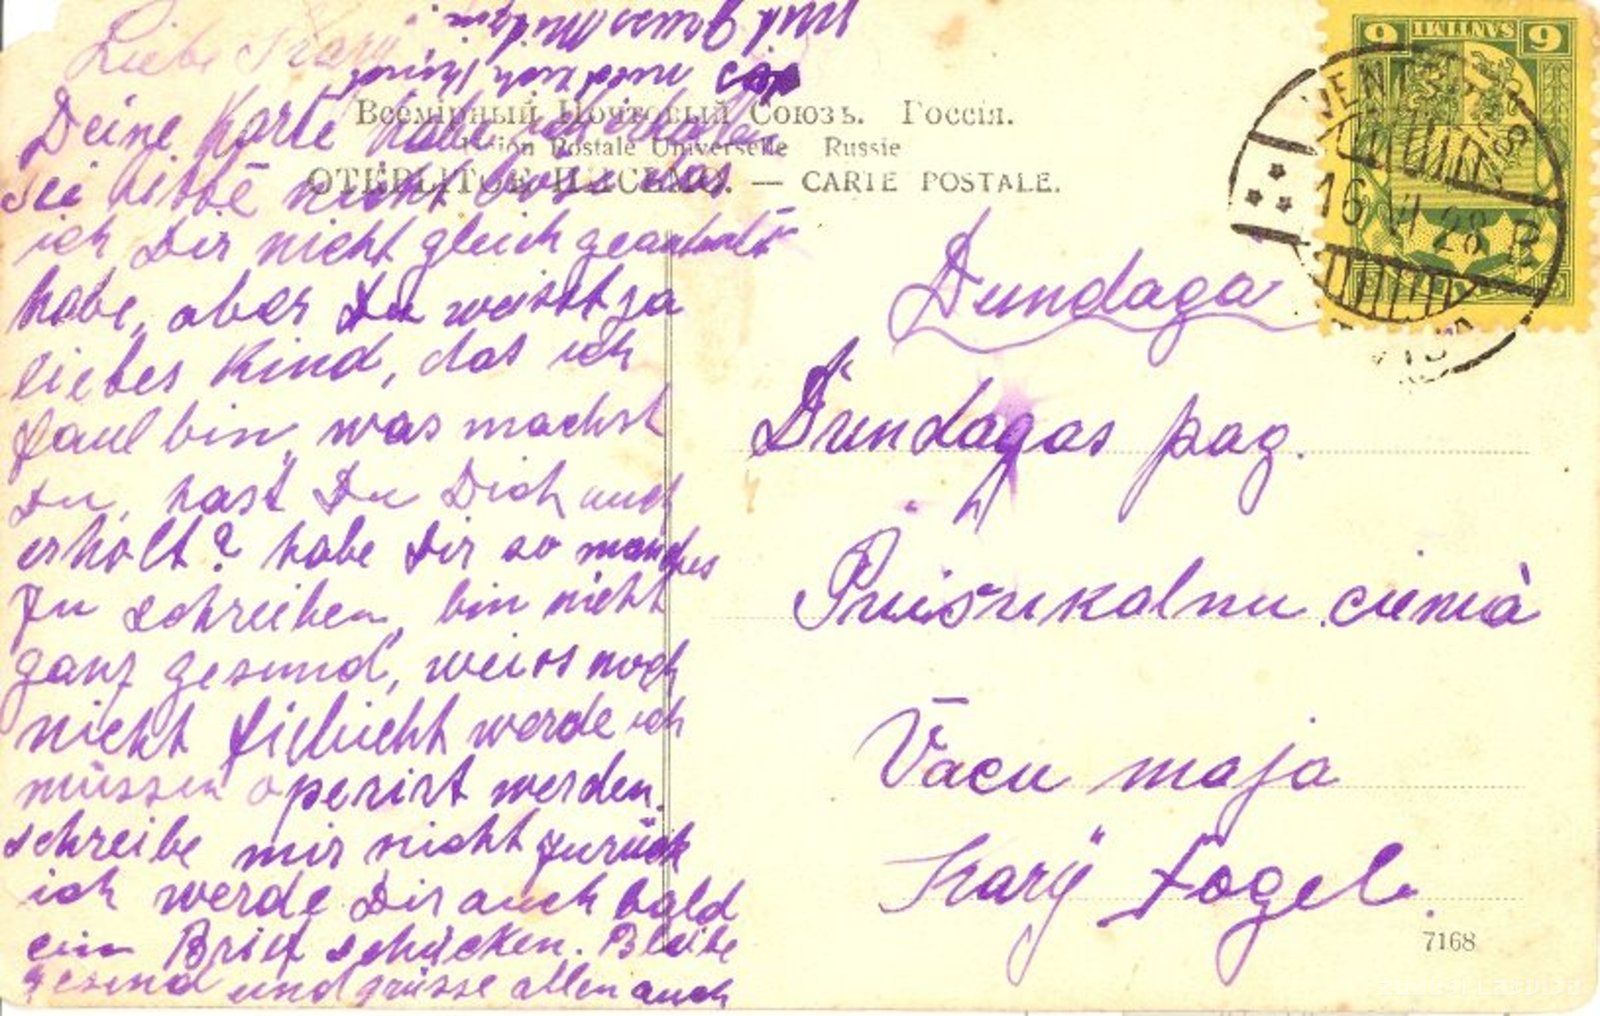 Liebe Kary
Deine Karte habe ich erhalten
sei bitte nicht böse das
ich Dir nicht gleich geantw
habe, aber Du weisst ja
liebes Kind, das ich
faul bin, was machst
Du, hast Du Dich auch
erholt? habe Dir so manches
zu schreiben, bin nicht
ganz gesund, weiss noch
nicht fileicht werde ich
müssen operirt werden.
schreibe mir nicht zurück
ich werde Dir auch bald
ein Brief schücken. Bleibe
gesund und grüsse allen auch
Всемірный Почтовый Союзъ. Россія.
Union Postale Universelle Russie
ОТКРЫТОЕ ПИСЬМО. — CARTE POSTALE.
6 SANTIMI 6
VENTSPILS
16 VI 28 B
Dundaga
Dundagas pag.
ciemā
Vācu maja
Karÿ Fogel.
7168